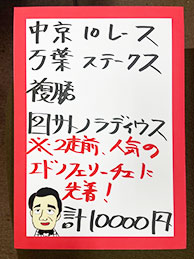 中京 10レース
万葉 ステークス
複勝
②サトノラディウス
※2走前、人気の
エドノフェリーチェに
先着!
計10000円